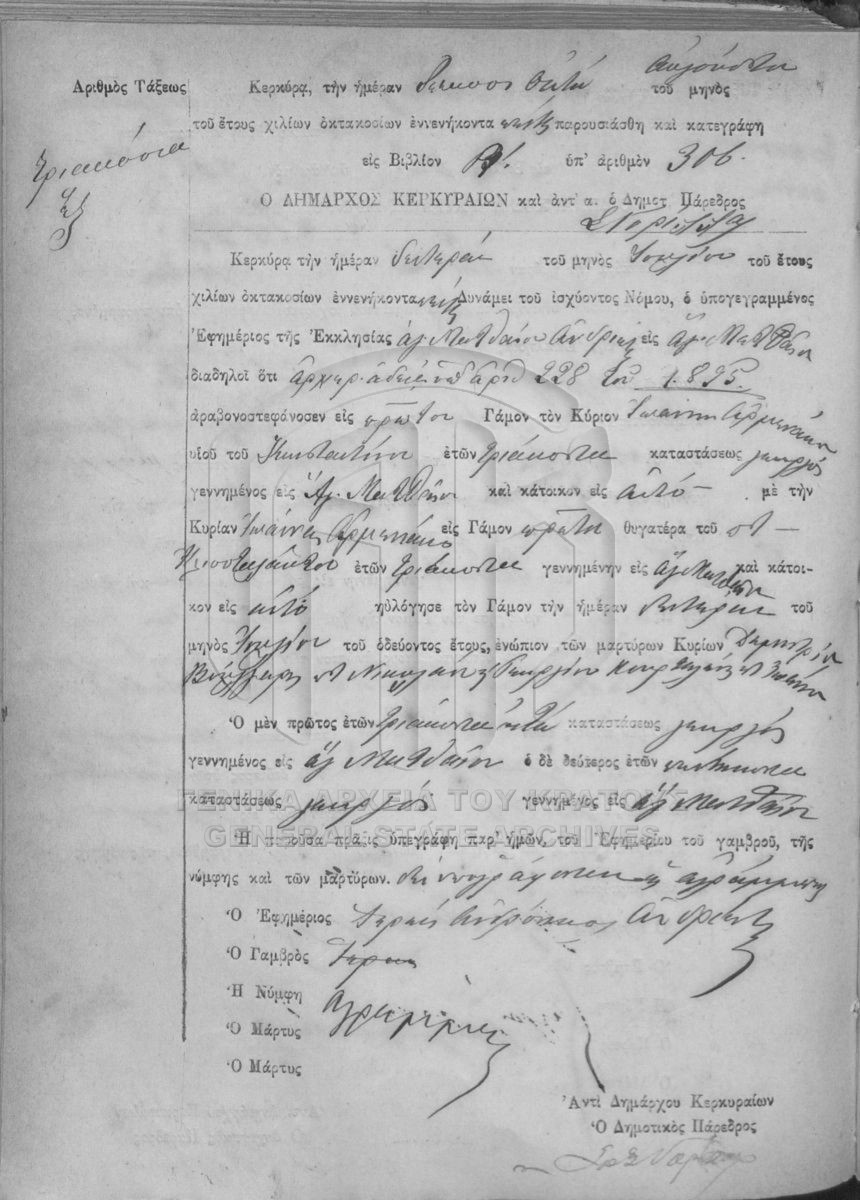 Ἀριθμὸς Τάξεως
τριακόσια
ἕξ
Κερκύρᾳ, τὴν ἡμέραν Αὐγούστου τοῦ μηνὸς
τοῦ ἔτους χιλίων ὀκτακοσίων ἐννενήκοντα πέντε παρουσιάσθη καὶ κατεγράφη
εἰς Βιβλίον Β'. ὑπ' ἀριθμὸν 306.
Ὁ ΔΗΜΑΡΧΟΣ ΚΕΡΚΥΡΑΙΩΝ καὶ ἀντ' α. ὁ Δημοτ Πάρεδρος
Κερκύρᾳ τὴν ἡμέραν δευτέραν τοῦ μηνὸς Ἰουλίου τοῦ ἔτους
χιλίων ὀκτακοσίων ἐννενήκοντα πέντε Δυνάμει τοῦ ἰσχύοντος Νόμου, ὁ ὑπογεγραμμένος
Ἐφημέριος τῆς Ἐκκλησίας ἁγ. Ματθαίου εἰς Ἁγ. Ματθαίου
διαδηλοῖ ὅτι ἀρχιερ. ἀδείᾳ ὑπ' ἀριθ 228 τοῦ 1895.
ἀραβονοστεφάνοσεν εἰς πρῶτον Γάμον τὸν Κύριον Ἰωάννην Ἀρμενάκην
υἱοῦ τοῦ Κωνσταντίνου ἐτῶν τριάκοντα καταστάσεως γεωργὸς
γεννημένος εἰς Ἁγ. Ματθαίον καὶ κάτοικον εἰς αὐτό μὲ τὴν
Κυρίαν Ἀρμενάκη εἰς Γάμον πρῶτον θυγατέρα τοῦ ποτ
ἐτῶν τριάκοντα γεννημένην εἰς ἁγ Ματθαῖον καὶ κάτοι-
κον εἰς αὐτό ηὐλόγησε τὸν Γάμον τὴν ἡμέραν δευτέραν τοῦ
μηνὸς Ἰουλίου τοῦ ὁδεύοντος ἔτους, ἐνώπιον τῶν μαρτύρων Κυρίων Δημητρίου
Βούλγαρη ποτ Νικολάου Γεωργίου
Ὁ μὲν πρῶτος ἐτῶν τριάκοντα ὀκτὼ καταστάσεως γεωργὸς
γεννημένος εἰς ἁγ Ματθαῖον ὁ δὲ δεύτερος ἐτῶν πεντήκοντα
καταστάσεως γεωργὸς γεννημένος εἰς ἁγ Ματθαῖον
ΓΕΝΙΚΑ ΑΡΧΕΙΑ ΤΟΥ ΚΡΑΤΟΥΣ
GENERAL STATE ARCHIVES
Ἡ παροῦσα πρᾶξις ὑπεγράφη παρ' ἡμῶν, τοῦ Ἐφημερίου τοῦ γαμβροῦ, τῆς
νύμφης καὶ τῶν μαρτύρων. δὲν ὑπογράφονται ὡς ἀγράμματοι
Ὁ Ἐφημέριος Ἱερεὺς
Ὁ Γαμβρὸς
Ἡ Νύμφη
Ὁ Μάρτυς
Ὁ Μάρτυς
Ἀντὶ Δημάρχου Κερκυραίων
Ὁ Δημοτικὸς Πάρεδρος